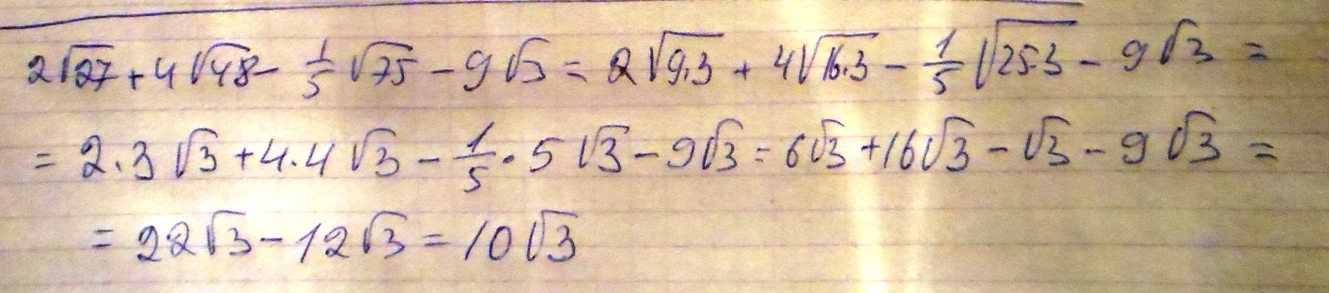 2√27 + 4√48 - 1/5 √75 - 9√3 = 2√9·3 + 4√16·3 - 1/5 √25·3 - 9√3 =
= 2·3√3 + 4·4√3 - 1/5 · 5√3 - 9√3 = 6√3 + 16√3 - √3 - 9√3 =
= 22√3 - 12√3 = 10√3